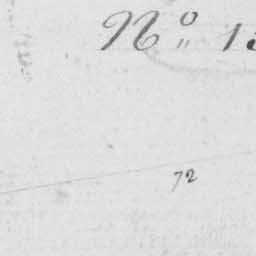 No 15
72